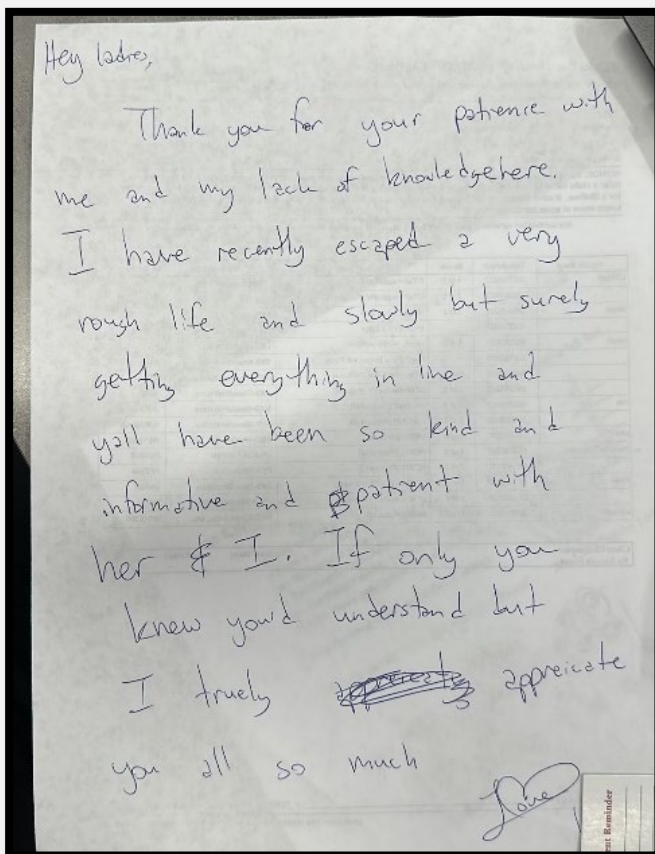 Hey ladies,
Thank you for your patience with
me and my lack of knowledge here.
I have recently escaped a very
rough life and slowly but surely
getting everything in line and
yall have been so kind and
informative and patient with
her & I. If only you
knew you'd understand but
I truely appreicate
you all so much
Love
ent Reminder